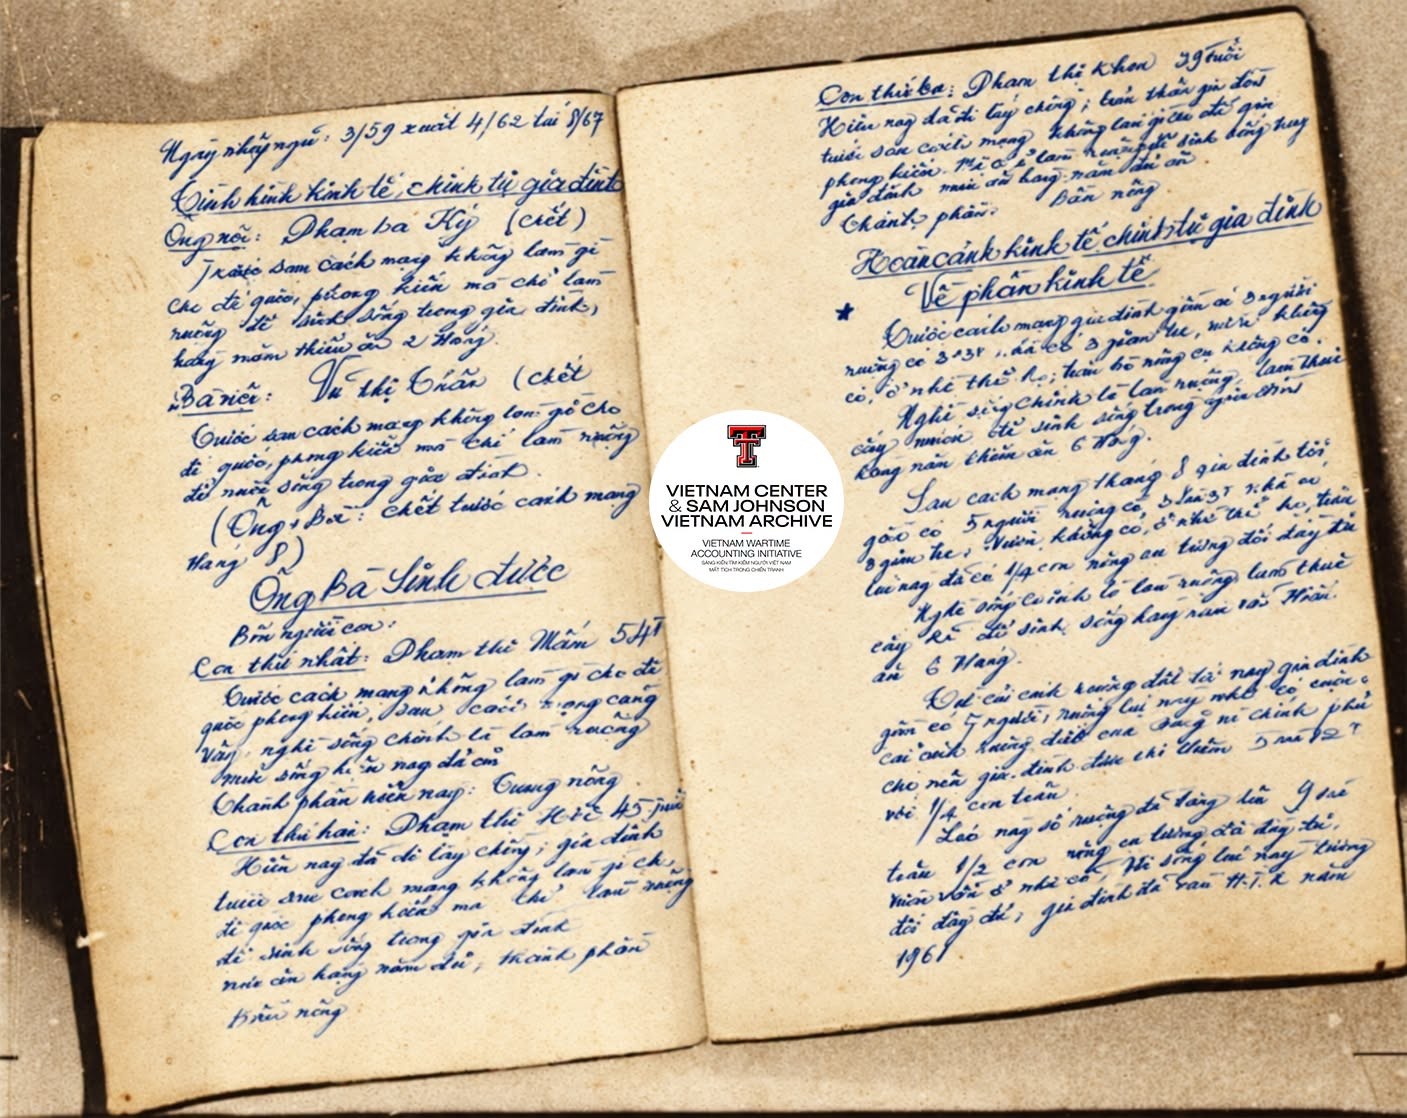 Ngày nhập ngũ: 3/59 xuất 4/62 tái 8/67
Tình hình kinh tế, chính trị gia đình
Ông nội: Phạm ba Ký (chết)
Trước sau cách mạng không làm gì
cho đế quốc, phong kiến mà chỉ làm
ruộng để sinh sống trong gia đình,
hàng năm thiếu ăn 2 tháng.
Bà nội: Vũ thị (chết
Trước sau cách mạng không làm gì cho
đế quốc, phong kiến mà chỉ làm ruộng
để nuôi sống trong gia đình.
(Ông + Bà: chết trước cách mạng
tháng 8)
Ông Bà sinh được
Bốn người con:
Con thứ nhất: Phạm thị Mầm 54T
Trước cách mạng không làm gì cho đế
quốc phong kiến, sau cách mạng cũng
vậy, nghề sống chính là làm ruộng
sống hiện nay đủ ăn
Thành phần hiện nay: Trung nông
Con thứ hai: Phạm thị 45 tuổi
Hiện nay đã đi lấy chồng, gia đình
trước sau cách mạng không làm gì cho
đế quốc phong kiến mà chỉ làm ruộng
để sinh sống trong gia đình
ăn hàng năm đủ, thành phần
nông
Con thứ ba: Phạm thị Khen 39 tuổi
Hiện nay đã đi lấy chồng; bản thân gia đình
trước sau cách mạng không làm gì cho đế quốc
phong kiến mà chỉ làm ruộng để sinh sống trong
gia đình hàng năm đủ ăn.
Thành phần: Bần nông
Hoàn cảnh kinh tế chính trị gia đình
Về phần kinh tế
Trước cách mạng gia đình gồm có 3 người
ruộng có nhà có 3 gian tre, vườn không
có, ở nhờ toàn bộ nông cụ không có.
Nghề sống chính là làm ruộng, làm thuê
cấy để sinh sống trong gia đình
hàng năm thiếu ăn 6 tháng.
Sau cách mạng tháng 8 gia đình tôi
gồm có 5 người ruộng có nhà có
3 gian tre, vườn không có, ở nhờ trâu
lúc này đã có 1/4 con nông cụ tương đối đầy đủ
Nghề sống chính là làm ruộng làm thuê
cấy để sinh sống hàng năm thiếu
ăn 6 tháng.
Từ cải cách ruộng đất tới nay gia đình
gồm có 7 người, ruộng lúc này nhờ có cuộc
cải cách ruộng đất của Đảng và chính phủ
cho nên gia đình được chia thêm
với 1/4 con trâu.
Lúc này số ruộng đã tăng lên 9 sào
trâu 1/2 con nông cụ tương đối đầy đủ,
vườn vẫn ở nhờ, đời sống lúc này tương
đối đầy đủ, gia đình đã vào H.T.X năm
1961
VIETNAM CENTER
& SAM JOHNSON
VIETNAM ARCHIVE
VIETNAM WARTIME
ACCOUNTING INITIATIVE
SÁNG KIẾN TÌM KIẾM NGƯỜI VIỆT NAM
MẤT TÍCH TRONG CHIẾN TRANH